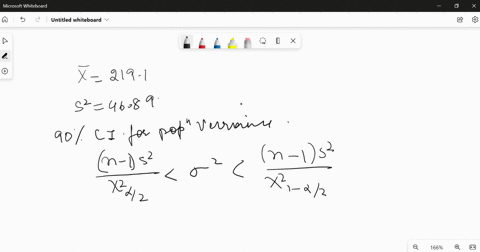 Microsoft Whiteboard
Untitled whiteboard
X̄ = 219.1
S² = 46.89.
90% CI for popⁿ variance.
(n-1)S² / χ²α/2 < σ² < (n-1)S² / χ²1-α/2
166%